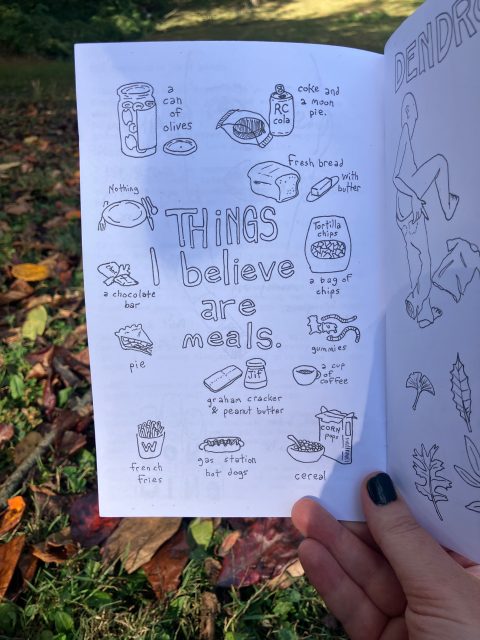 a
can
of
olives
RC
cola
coke and
a moon
pie.
Fresh bread
with
butter
Nothing
THINGS
I believe
are
meals.
Tortilla
chips
a bag of
chips
a chocolate
bar
pie
gummies
Jif
graham cracker
& peanut butter
a cup
of
coffee
W
french
fries
gas station
hot dogs
CORN
POPS
cereal
DENDRO